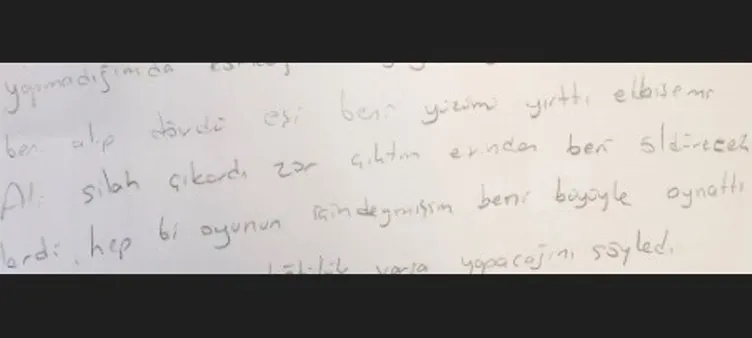 yapmadığımda
beni alıp dövdü eşi beni yüzümü yırttı elbisemi
Ali silah çıkardı zor çıktım evinden beni öldürecek
lerdi. hep bi oyunun içindeymişim beni büyüyle oynattı
varsa yapacağını söyledi